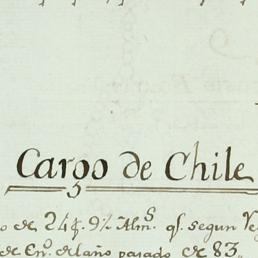 Cargo de Chile
o de 24 q. 9½ Alm.s q.e segun
de En.o del año pasado de 83,,